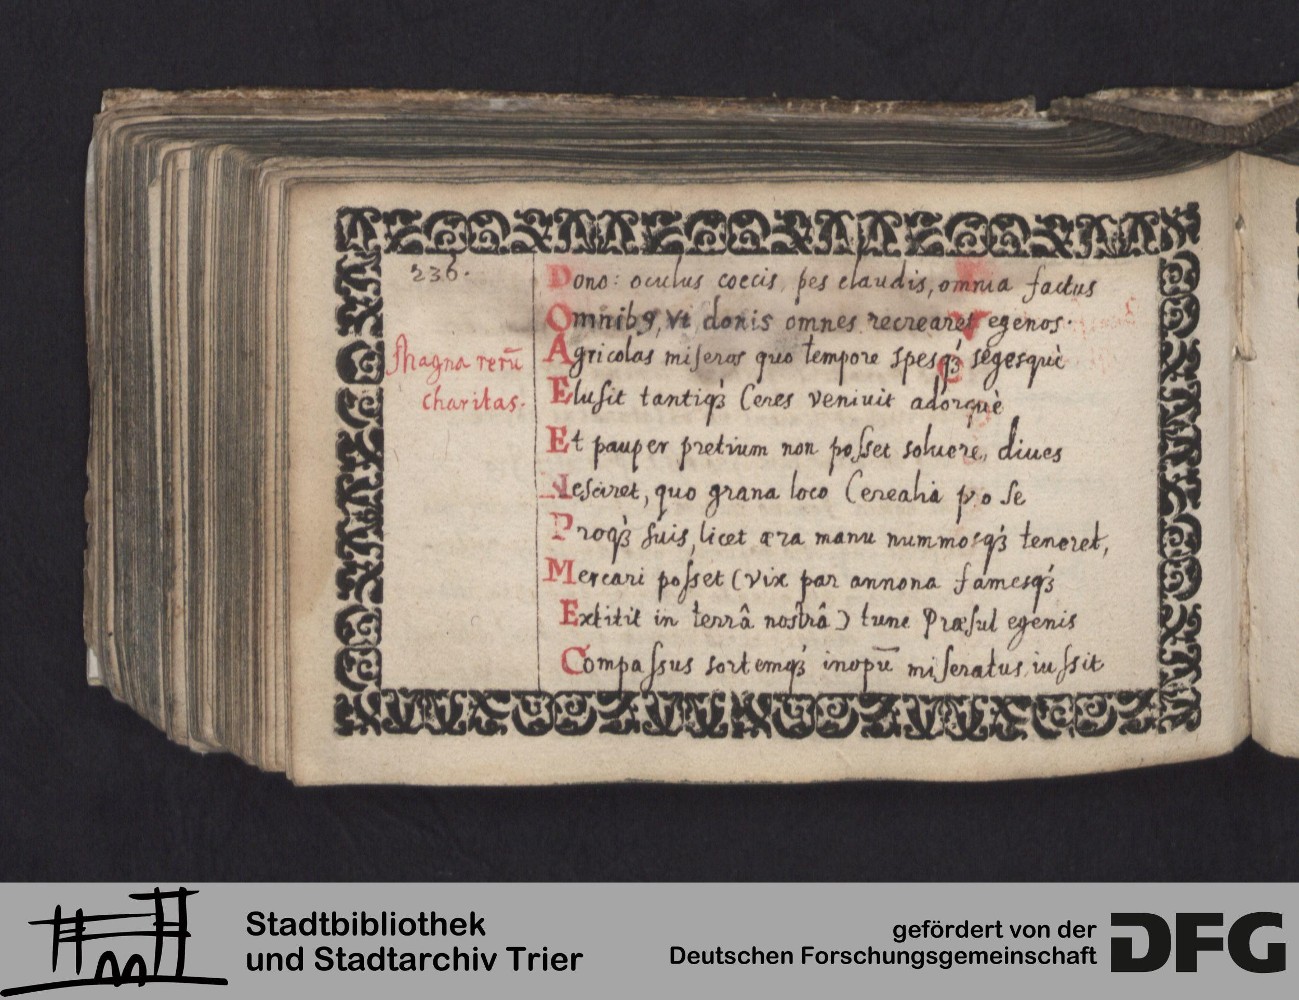 236.
Magna rerū
charitas.
Dono: oculus coecis, pes claudis, omnia factus
Omnibꝯ, vt donis omnes recrearet egenos.
Agricolas miseros quo tempore spesq́ꝫ segesquè
Elusit tantiq́ꝫ Ceres veniuit adorquè
Et pauper pretium non posset soluere, diues
Nesciret, quo grana loco Cerealia pose
Proq́ꝫ suis, licet æra manu nummosq́ꝫ teneret,
Mercari posset (vix par annona famesq́ꝫ
Extitit in terrâ nostrâ) tunc Præsul egenis
Compassus sortemq́ꝫ inopū miseratus, iussit
Stadtbibliothek
und Stadtarchiv Trier
gefördert von der
Deutschen Forschungsgemeinschaft
DFG